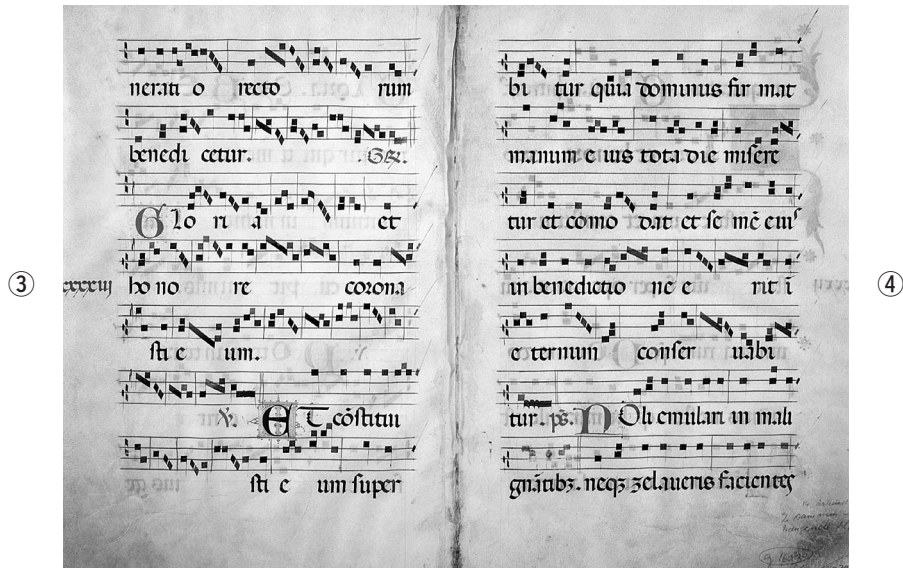 ③
nerati o recto rum
benedi cetur. Gr̄.
G lo ri a et
ho no re corona
xxxxiij
sti e um.
℣. E T cōstitui
sti e um super
④
bi tur quia dominus fir mat
manum e ius tota die misere
tur et como dat et se mē eius
in benedictio nē e rit ī
e ternum conser uabi
tur. ps̄. N Oli emulari in mali
gnātibꝫ. neqꝫ zelaueris facientes